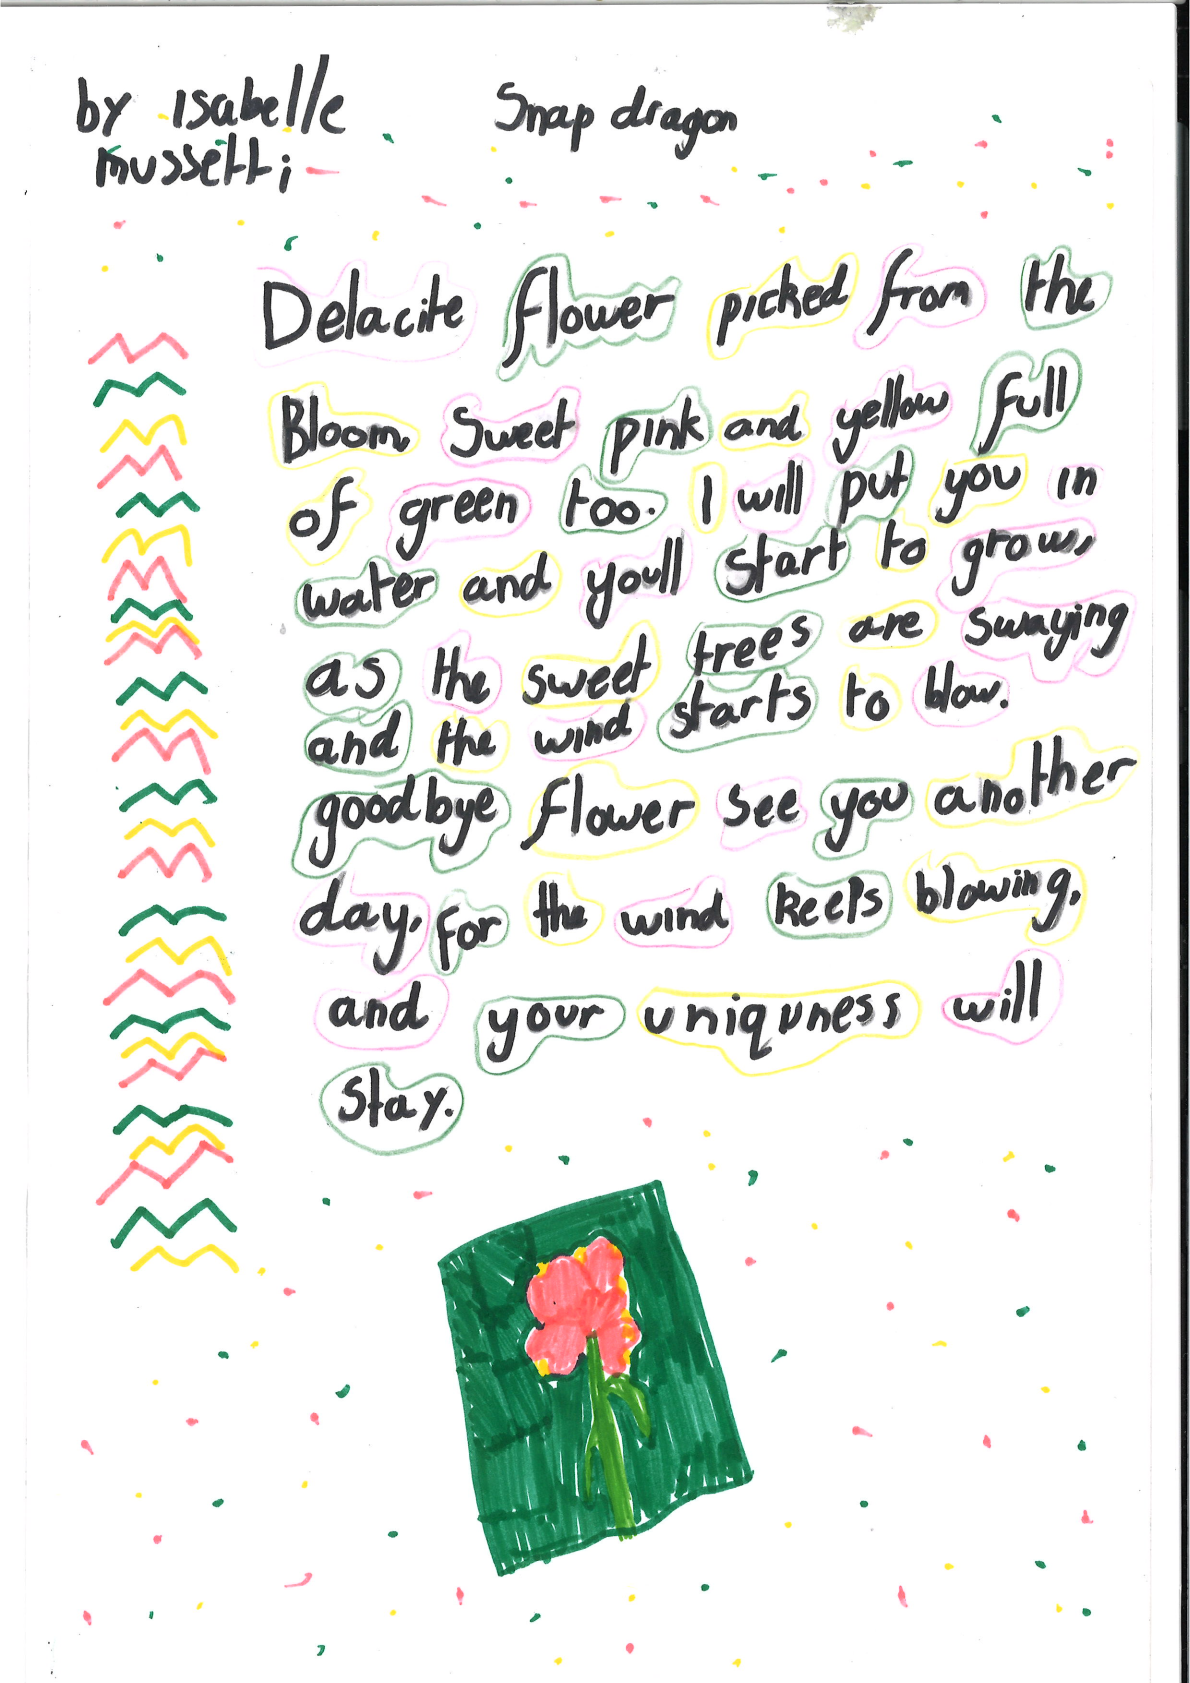 by Isabelle
mussetti
Snap dragon
Delacite flower picked from the
Bloom. Sweet pink and yellow full
of green too. I will put you in
water and youll start to grow,
as the sweet trees are swaying
and the wind starts to blow.
goodbye flower see you another
day, for the wind keeps blowing,
and your uniquness will
stay.